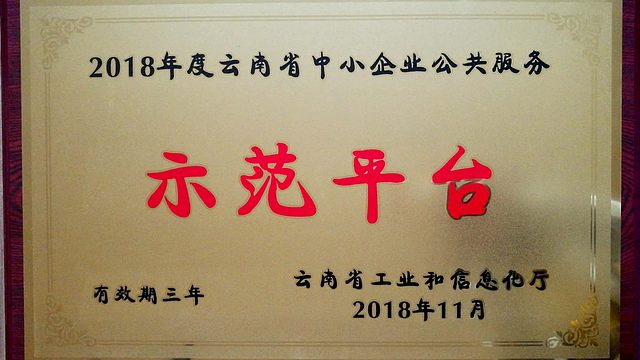 2018年度云南省中小企业公共服务
示范平台
云南省工业和信息化厅
有效期三年
2018年11月